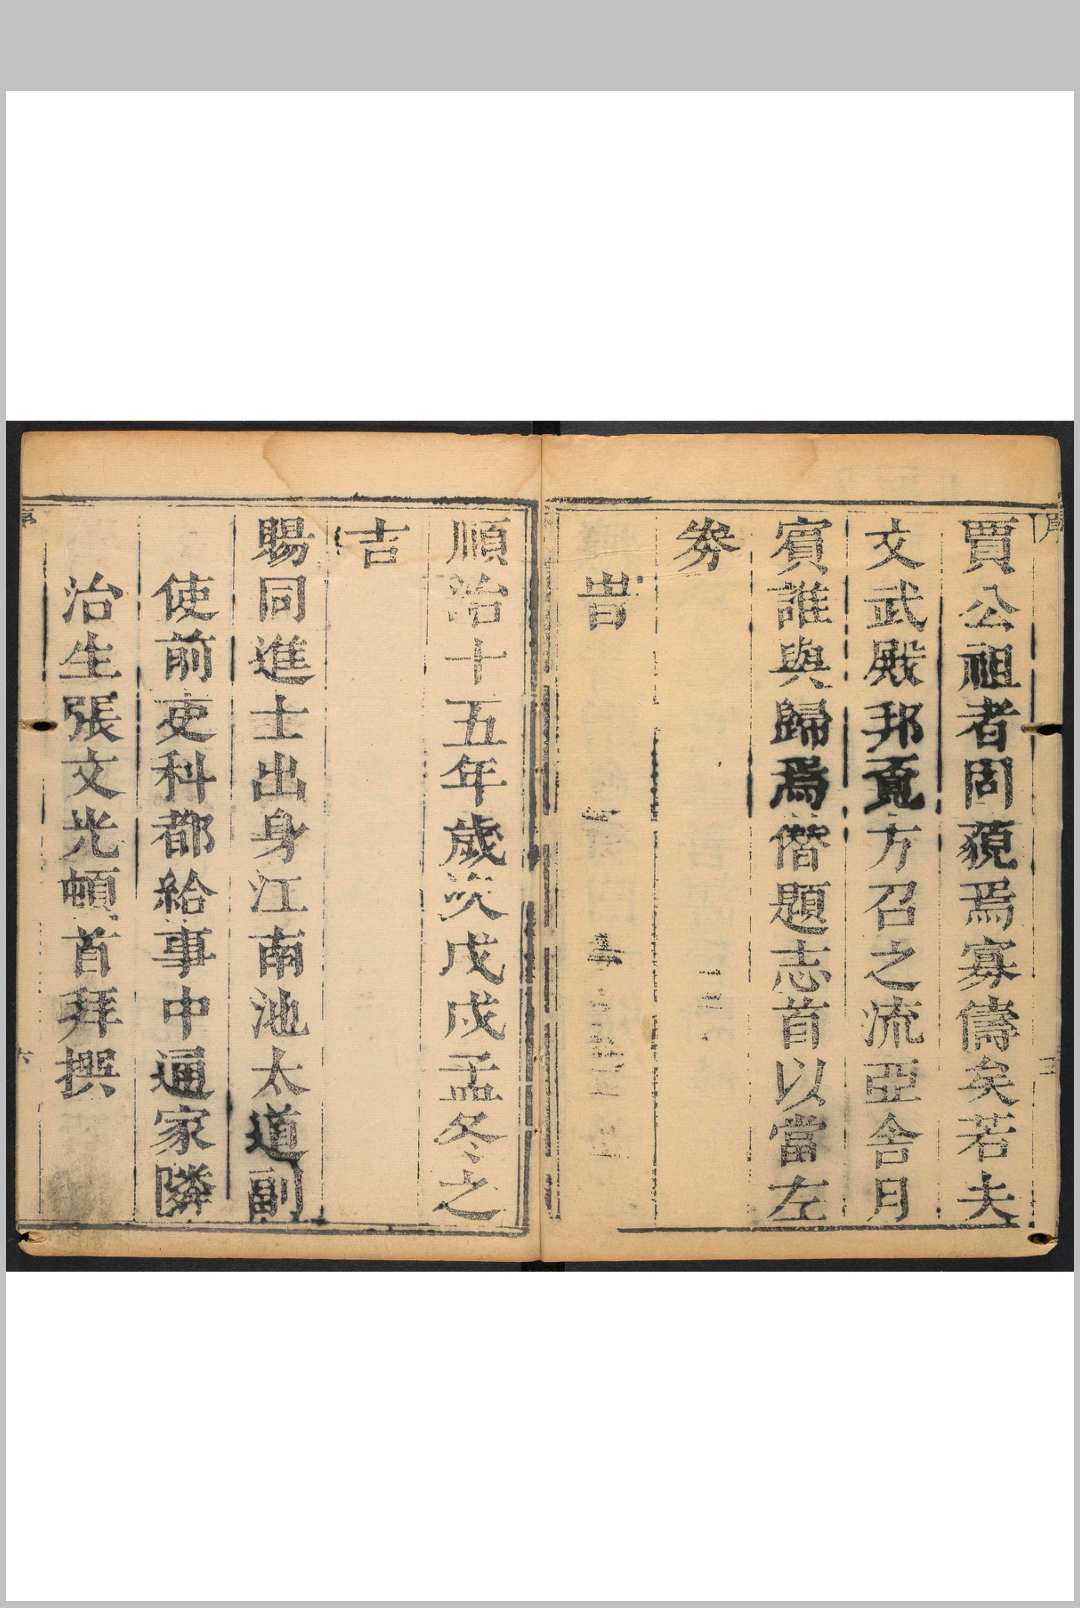 賈公祖者固藐焉寡儔矣若夫
文武殿邦負方召之流亞舍月
賓誰與歸焉僭題志首以當左
劵
旹
順治十五年歲次戊戌孟冬之
吉
賜同進士出身江南池太道副
使前吏科都給事中通家隣
治生張文光頓首拜撰